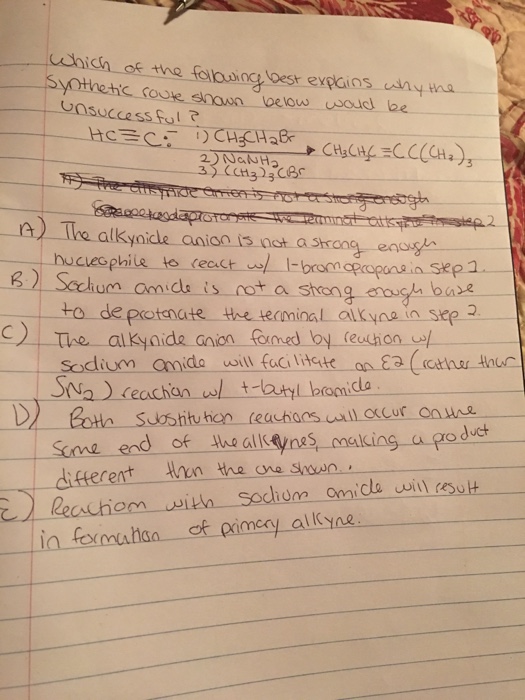 Which of the following best explains why the
synthetic route shown below would be
unsuccessful?
HC≡C:⁻ 1) CH3CH2Br → CH3CH2C≡CC(CH3)3
2) NaNH2
3) (CH3)3CBr
A) The alkynide anion is not a strong enough
2
A) The alkynide anion is not a strong enough
nucleophile to react w/ 1-bromopropane in step 1.
B) Sodium amide is not a strong enough base
to deprotonate the terminal alkyne in step 2.
C) The alkynide anion formed by reaction w/
sodium amide will facilitate an E2 (rather than
SN2) reaction w/ t-butyl bromide.
D) Both substitution reactions will occur on the
same end of the alkynes, making a product
different than the one shown.
E) Reaction with sodium amide will result
in formation of primary alkyne.